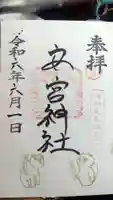 奉拝
安宮神社
令和六年六月一日